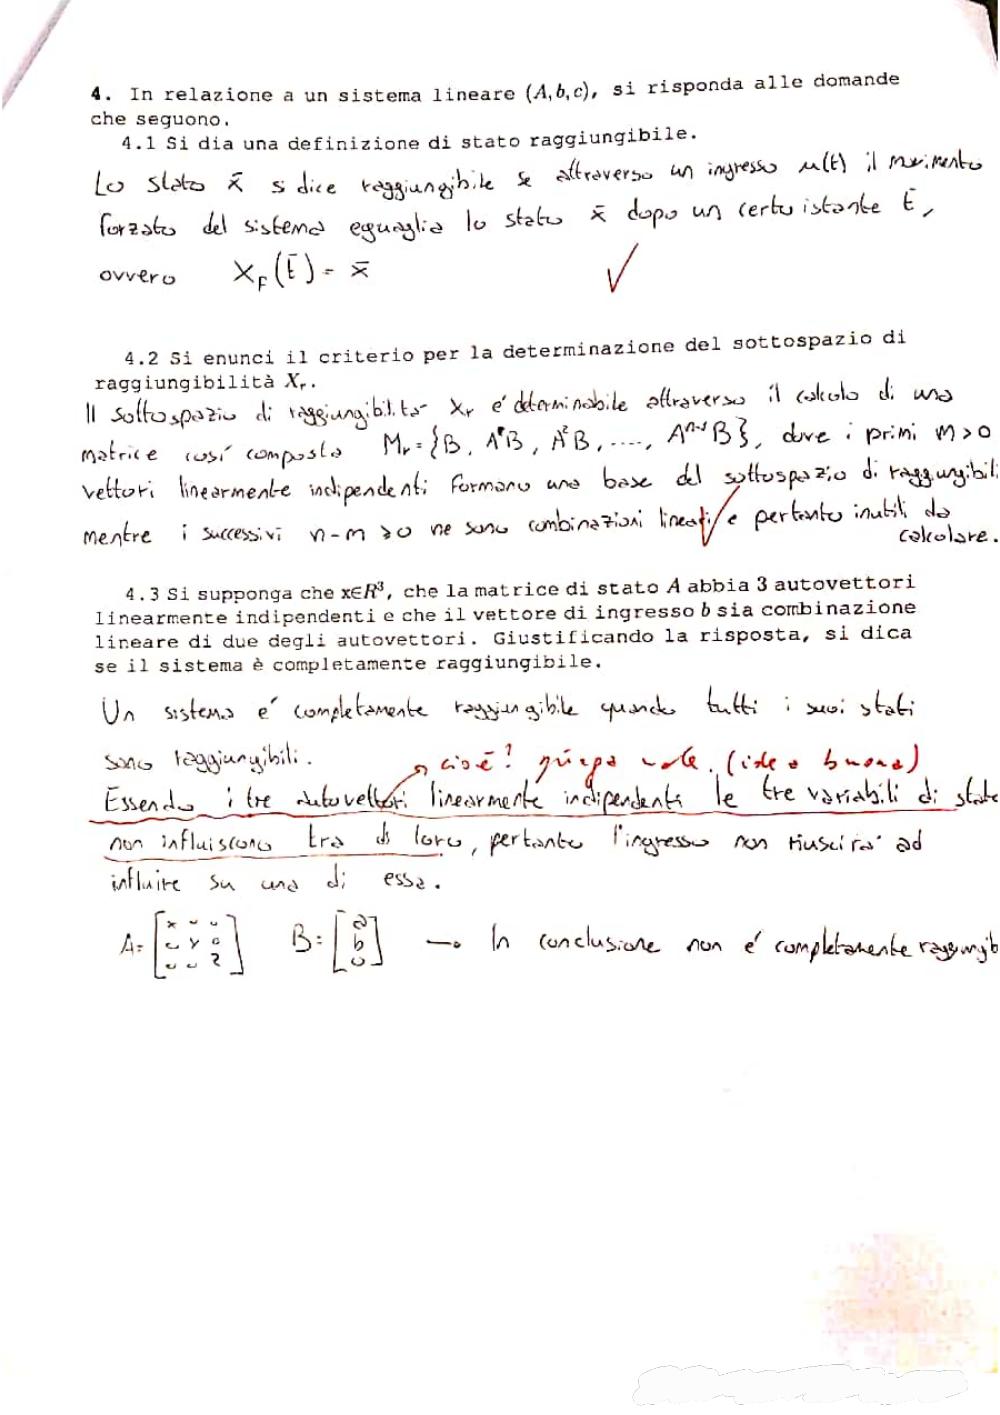 4. In relazione a un sistema lineare (A,b,c), si risponda alle domande
che seguono.
4.1 Si dia una definizione di stato raggiungibile.
Lo stato x̄ si dice raggiungibile se attraverso un ingresso u(t) il movimento
forzato del sistema eguaglia lo stato x̄ dopo un certo istante t̄,
ovvero X_F(t̄) = x̄ ✓
4.2 Si enunci il criterio per la determinazione del sottospazio di
raggiungibilità Xr.
Il sottospazio di raggiungibilità Xr é determinabile attraverso il calcolo di una
matrice cosí composta Mr = {B, A¹B, A²B, ...., Aⁿ⁻¹B}, dove i primi m>0
vettori linearmente indipendenti formano una base del sottospazio di raggungibili
mentre i successivi n-m ≥0 ne sono combinazioni lineari e pertanto inutili da
calcolare.
4.3 Si supponga che x∈R³, che la matrice di stato A abbia 3 autovettori
linearmente indipendenti e che il vettore di ingresso b sia combinazione
lineare di due degli autovettori. Giustificando la risposta, si dica
se il sistema è completamente raggiungibile.
Un sistema e' completamente raggiungibile quando tutti i suoi stati
sono raggiungibili.
cioè? (idea buona)
Essendo i tre autovettori linearmente indipendenti le tre variabili di stato
non influiscono tra di loro, pertanto l'ingresso non riuscira' ad
influire su una di esse.
A= [x 0 0; 0 y 0; 0 0 z] B= [a b 0] → In conclusione non e' completamente raggiungib